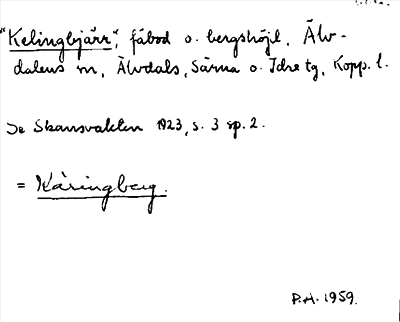 "Kelingbjärr", fäbod o. bergshöjd. Älv-
dalens sn, Älvdals, Särna o. Idre tg, Kopp. l.
Se Skansvakten 1923, s. 3 sp. 2.
= Käringberg.
P.A. 1959.